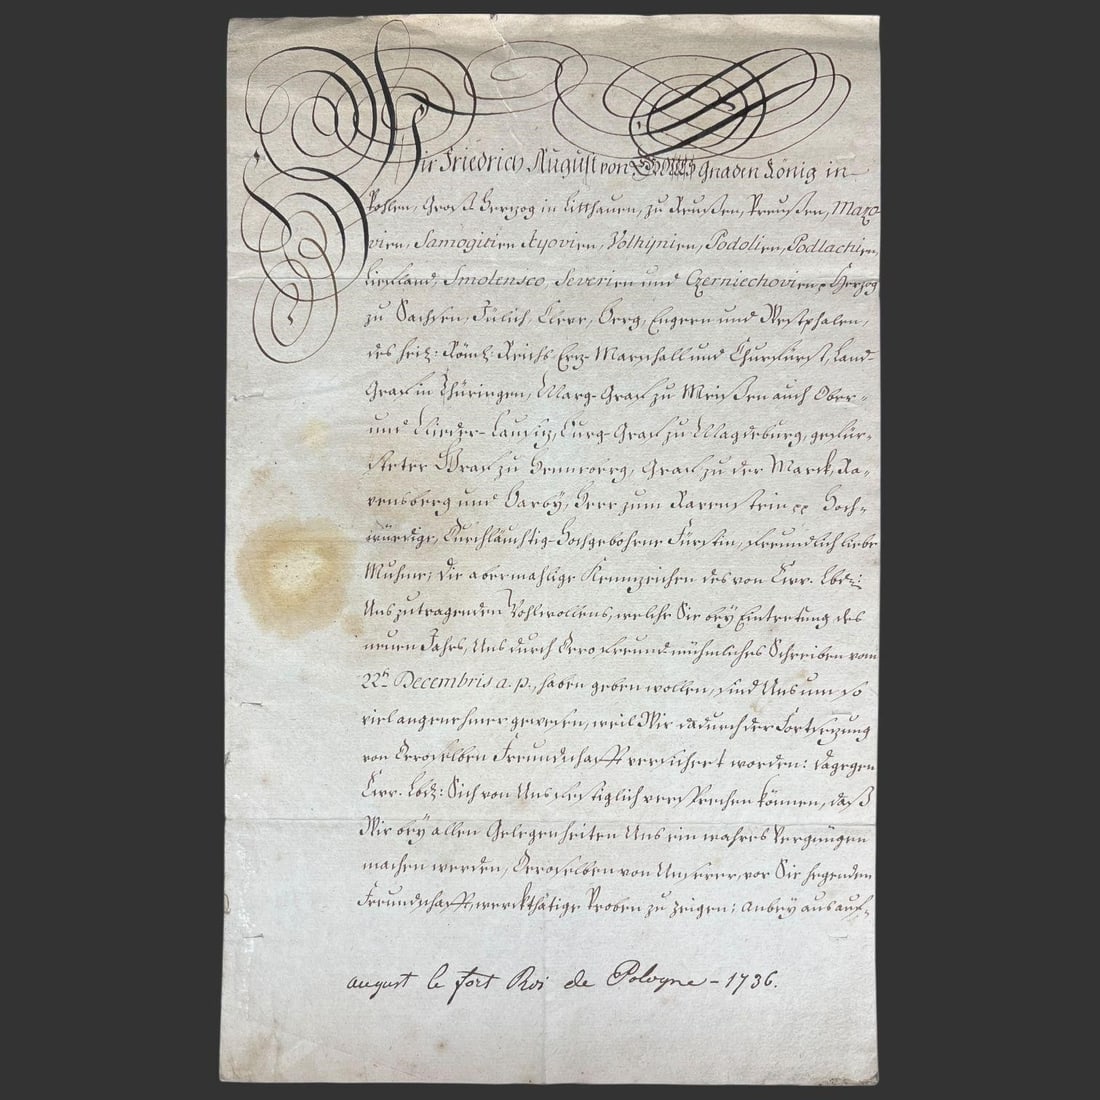 Wir Friedrich August von Gottes Gnaden König in
Pohlen, Groß Herzog in Litthauen, zu Reußen, Preußen, Mazo
vien, Samogitien Kyovien, Volhÿnien, Podolien, Podlachien,
Liefland, Smolensco, Severien und Czerniechovien p Herzog
zu Sachsen, Jülich, Cleve, Berg, Engern und Westphalen,
des heil: Röml: Reichs Erz-Marschall und Churfürst, Land-
Graf in Thüringen, Marg-Graf zu Meißen auch Ober-
und Nieder-Lausitz, Burg-Graf zu Magdeburg, gefür-
steter Graf zu Henneberg, Graf zu der Marck, Ra-
vensberg und Barbÿ, Herr zum Ravenstein pp Hoch-
würdige, Durchlauchtig-Hochgebohrne Fürstin, freundlich liebe
Muhme; Die abermahlige Kennzeichen des von Ew. Lbd:
Uns zutragenden Wohlwollens, welche Sie beÿ Eintretung des
neuen Jahrs, Uns durch Dero freundmühmliches Schreiben vom
22ten Decembris a. p., haben geben wollen, sind Uns um so
viel angenehmer gewesen, weil Wir dadurch der Fortsezung
von Deroselben Freundschafft versichert worden: dagegen
Ew. Lbd: Sich von Uns festiglich versprechen können, daß
Wir beÿ allen Gelegenheiten Uns ein wahres Vergnügen
machen werden, Deroselben von Unserer, vor Sie hegenden
Freundschafft, werckthätige Proben zu zeigen; anbeÿ aus auf-
august le fort Roi de Pologne - 1736.